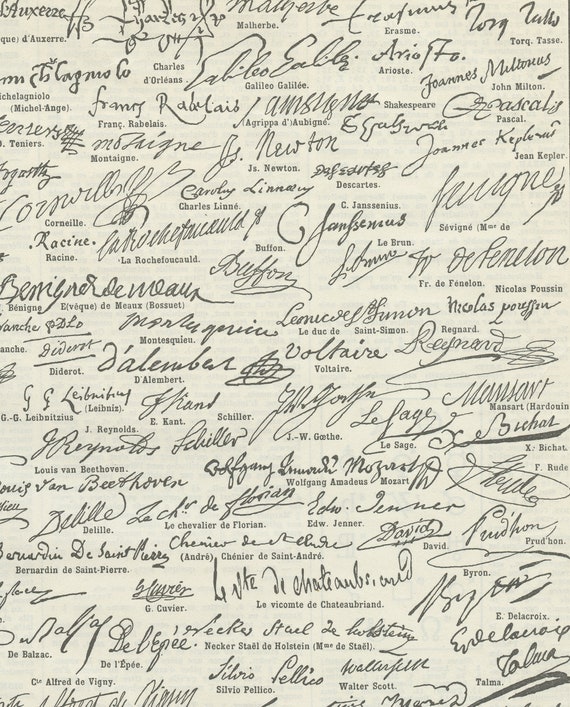 d'Auxerre
Malherbe
Erasmus
Torq Tasso
que) d'Auxerre.
Charles
d'Orléans.
Malherbe.
Erasme.
Torq. Tasse.
Galileo Galilei
Ariosto.
Joannes Miltonus
Michelagniolo
(Michel-Ange).
Galileo Galilée.
Arioste.
John Milton.
franç Rabelais
Shakespeare
Pascal
Franç. Rabelais.
(Agrippa d'Aubigné.
Pascal.
D. Teniers.
montaigne
Js. Newton
Joannes Keplerus
Montaigne.
Js. Newton.
Descartes
Jean Kepler
Hogarth
Descartes.
Corneille
Carolus Linnæus
Sevigne
Charles Linné.
C. Janssenius.
Corneille.
C Janssenius
Sévigné (Mme de
Racine.
La Rochefoucauld
Buffon.
Le Brun.
Racine.
La Rochefoucauld.
Buffon
Le Brun
De Fenelon
Fr. de Fénelon.
Nicolas Poussin
Benigne E de meaux
Bénigne
E(vêque) de Meaux (Bossuet)
montesquieu
Nicolas poussin
Montesquieu.
Le duc de
Saint-Simon.
Regnard.
Diderot
D'alembert
Voltaire
Regnard
Diderot.
D'Alembert.
Voltaire.
G G Leibnitius
Kant
Mansart
G.-G. Leibnitzius
(Leibniz).
E. Kant.
Schiller.
Mansart (Hardouin
J. Reynolds.
J.-W. Gœthe.
Le Sage
Bichat
J Reynolds
Schiller
Le Sage.
X. Bichat.
Louis van Beethoven.
Wolfgang Amadeus
Mozart
F. Rude
Louis van Beethoven
Rude
Delille
Le chr. de florian
Edw. Jenner
David
Prudhon
Delille.
Le chevalier de Florian.
Edw. Jenner.
David.
Prud'hon.
Bernardin De Saint Pierre
Chenier de St André
Bernardin de Saint-Pierre.
(André)
Chénier de Saint-André.
Byron.
G. Cuvier
Le vte de chateaubriand
Byron
G. Cuvier.
Le vicomte de Chateaubriand.
E. Delacroix.
De Balzac
De l'Epée.
Necker Stael de holstein
E. Delacroix
De Balzac.
De l'Épée.
Necker Staël de Holstein (Mme de Staël).
Talma
Silvio Pellico
Walter Scott
Cte Alfred de Vigny.
Silvio Pellico.
Walter Scott.
Talma.
Alfred de Vigny